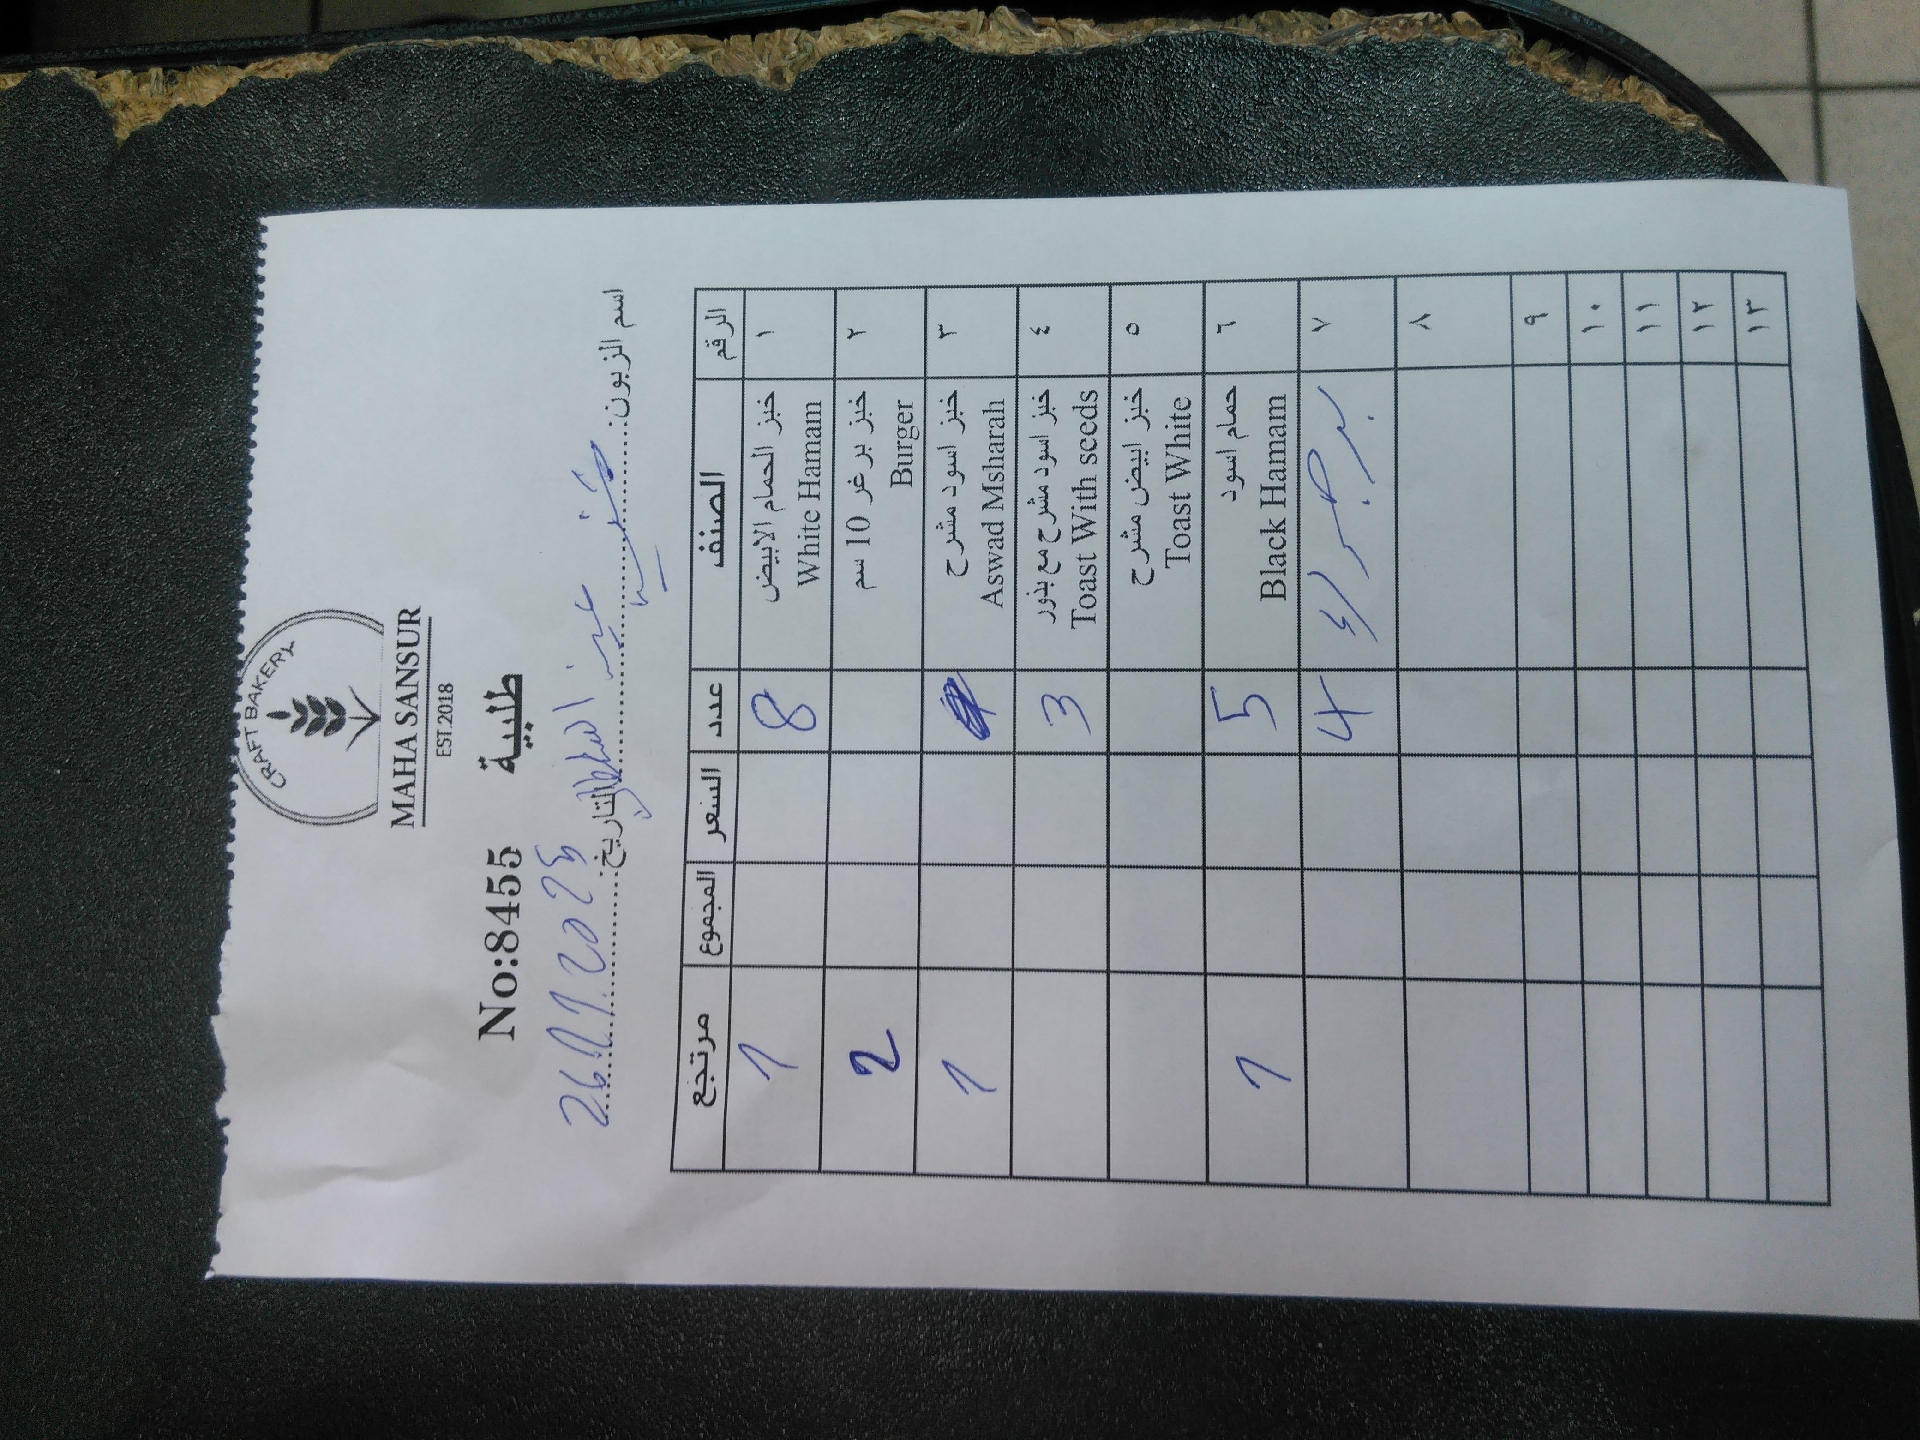 CRAFT BAKERY
MAHA SANSUR
EST.2018
طلبية
No:8455
اسم الزبون: عين السلطان التاريخ: 26.11.2024
الرقم الصنف عدد السعر المجموع مرتجع
١ خبز الحمام الابيض White Hamam 8 1
٢ خبز برغر 10 سم Burger 2
٣ خبز اسود مشرح Aswad Msharah 1
٤ خبز اسود مشرح مع بذور Toast With seeds 3
٥ خبز ابيض مشرح Toast White
٦ حمام اسود Black Hamam 5 1
٧ 4
٨
٩
١٠
١١
١٢
١٣